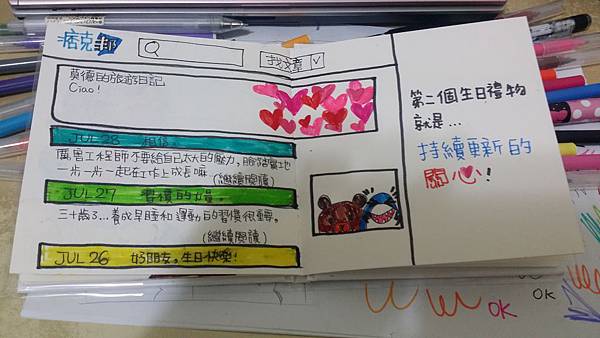 痞克邦
找文章
莫德的旅遊日記
Ciao!
JUL 28 相信。
厲害工程師不要給自己太大的壓力,腳踏實地
一步一步一起在工作上成長嘛
(繼續閱讀)
JUL 27 習慣的力量。
三十歲了...養成早睡和運動的習慣很重要。
(繼續閱讀)
JUL 26 好朋友,生日快樂!
第二個生日禮物
就是...
持續更新的
關心!
OK
OK